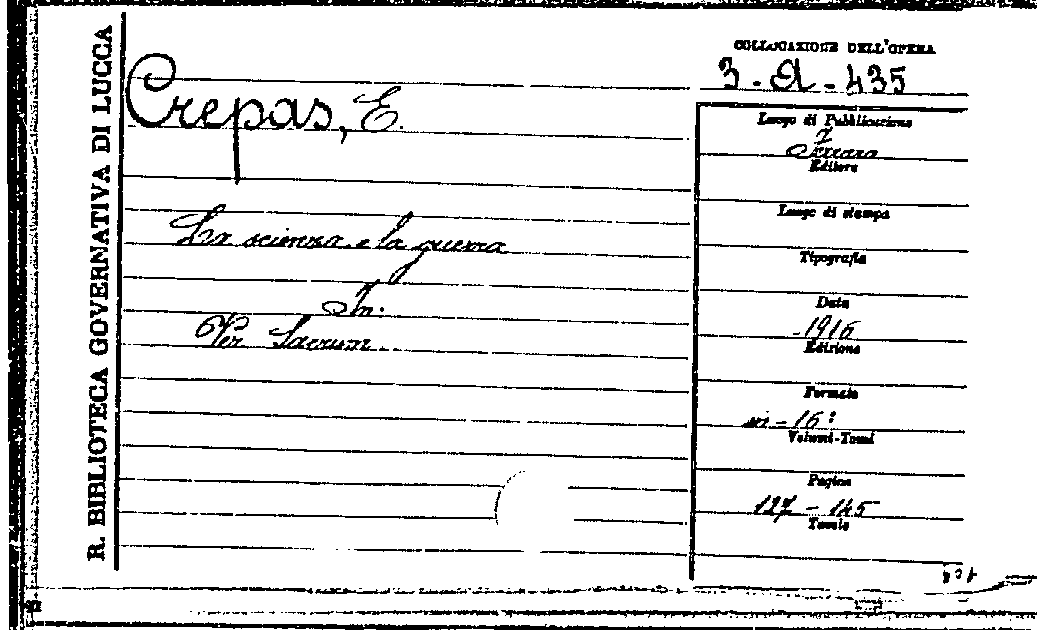 R. BIBLIOTECA GOVERNATIVA DI LUCCA
Crepas, E.
La scienza e la guerra
In:
Ver Sacrum.
COLLOCAZIONE DELL'OPERA
3 - A - 435
Luogo di Pubblicazione
Ferrara
Editore
Luogo di stampa
Tipografia
Data
1916
Edizione
Formato
in - 16°
Volumi-Tomi
Pagine
127 - 145
Tavole